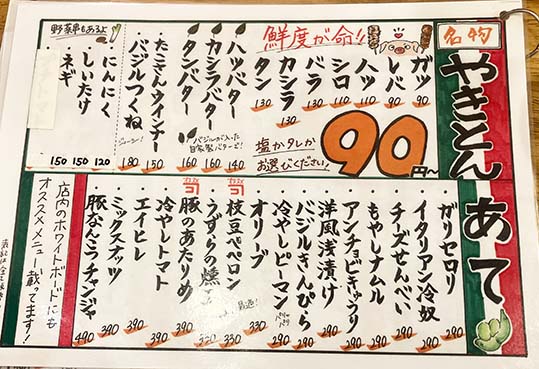 名物
やきとん
鮮度が命!!
90円〜
塩かタレか
お選びください!
ガツ 90
レバ 90
ハツ 110
シロ 110
バラ 130
カシラ 130
タン 130
ハツバター 140
カシラバター 160
タンバター 160
バジルが入った
自家製バターだ!
たこさんウインナー 150
バジルつくね 180
ジューシー!
野菜串もあるよ!
にんにく 120
しいたけ 150
ネギ 150
あて
ガリセロリ 290
イタリアン冷奴 290
チーズせんべい 290
もやしナムル 290
アンチョビきゅうり 290
洋風浅漬け 290
バジルきんぴら 290
冷やしピーマン 290
パリパリ
オリーブ 330
枝豆ペペロン 330
うずらの燻
豚のあたりめ 390
冷やしトマト 390
エイヒレ 390
ミックスナッツ 390
豚なんこつチャンジャ 490
店内のホワイトボードにも
オススメメニュー載ってます!